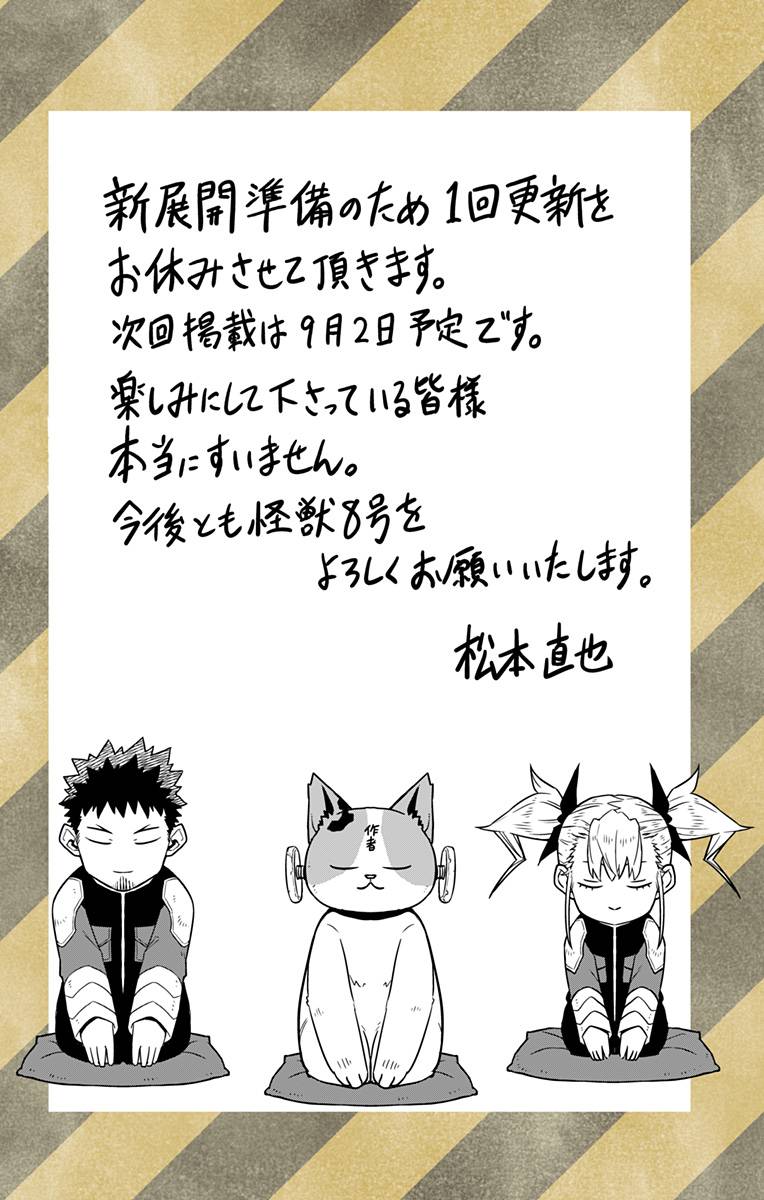 新展開準備のため1回更新を
お休みさせて頂きます。
次回掲載は9月2日予定です。
楽しみにして下さっている皆様
本当にすいません。
今後とも怪獣8号を
よろしくお願いいたします。
松本直也
作者